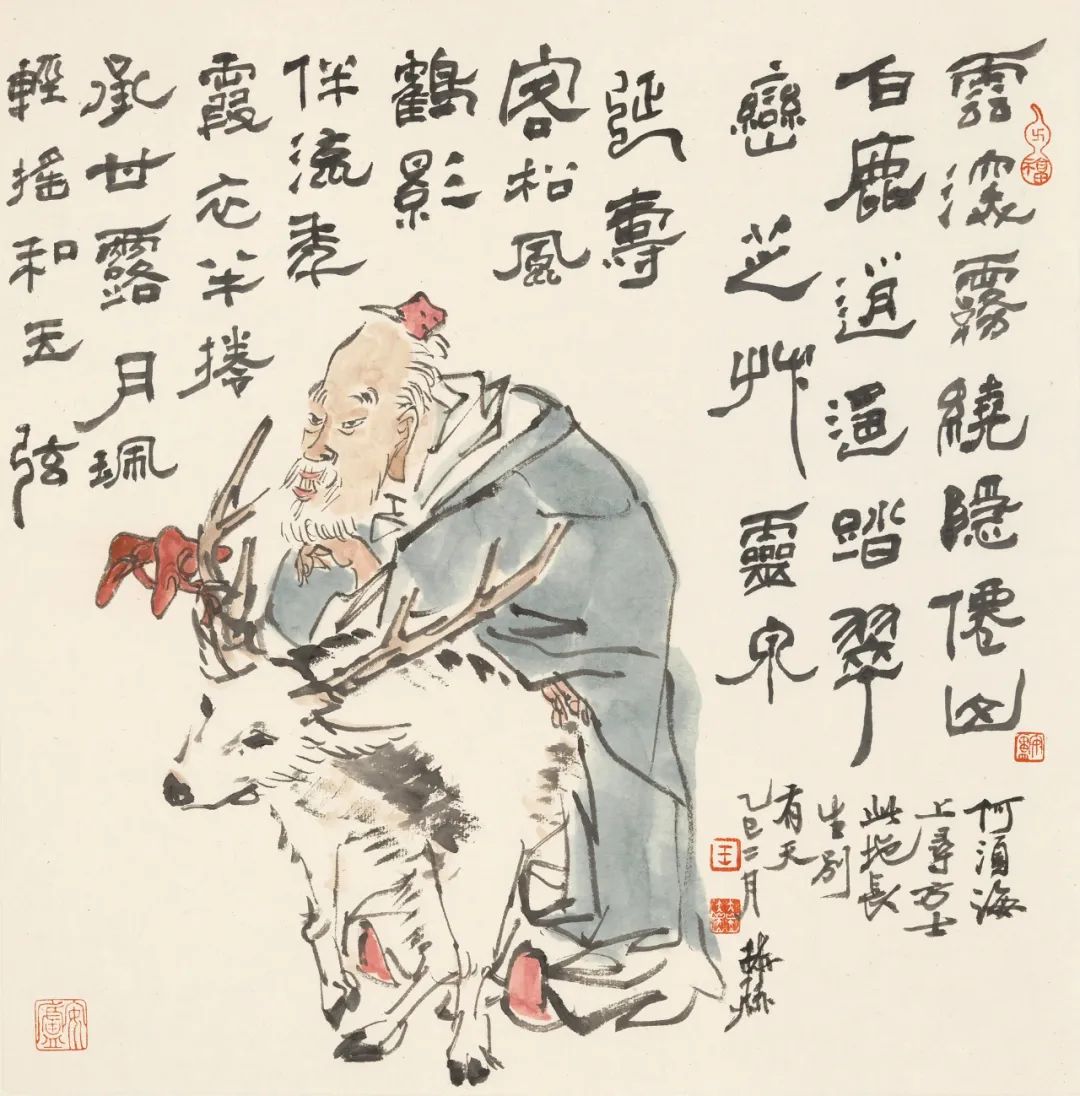 雲深霧繞隐僊山
白鹿逍遥踏翠
巒芝艸靈泉
延壽
客松風
鶴影
伴流年
霞衣半捲
承甘露月珮
輕搖和玉弦
何須海
上尋方士
此地長
生別
有天
乙巳二月
王